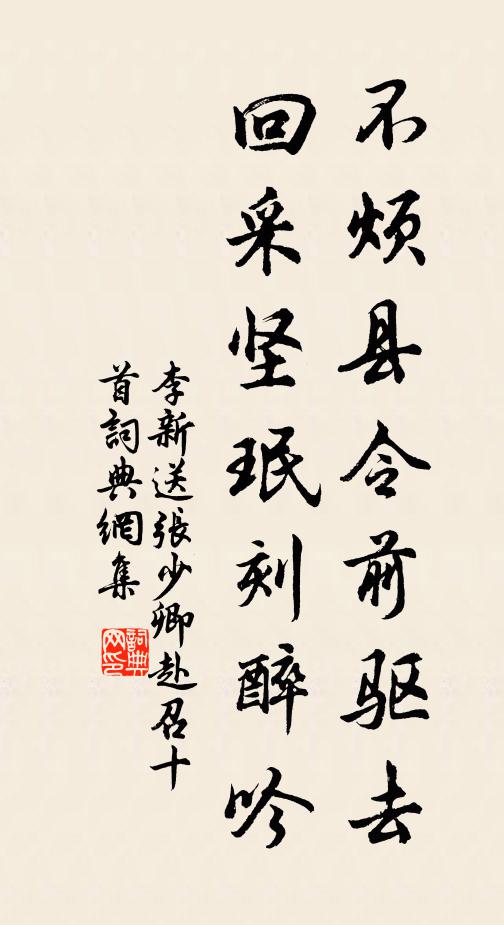 不烦县令前驱去
回采坚珉刻醉吟
李新送張少卿赴召十
首詞典網集
詞典网印